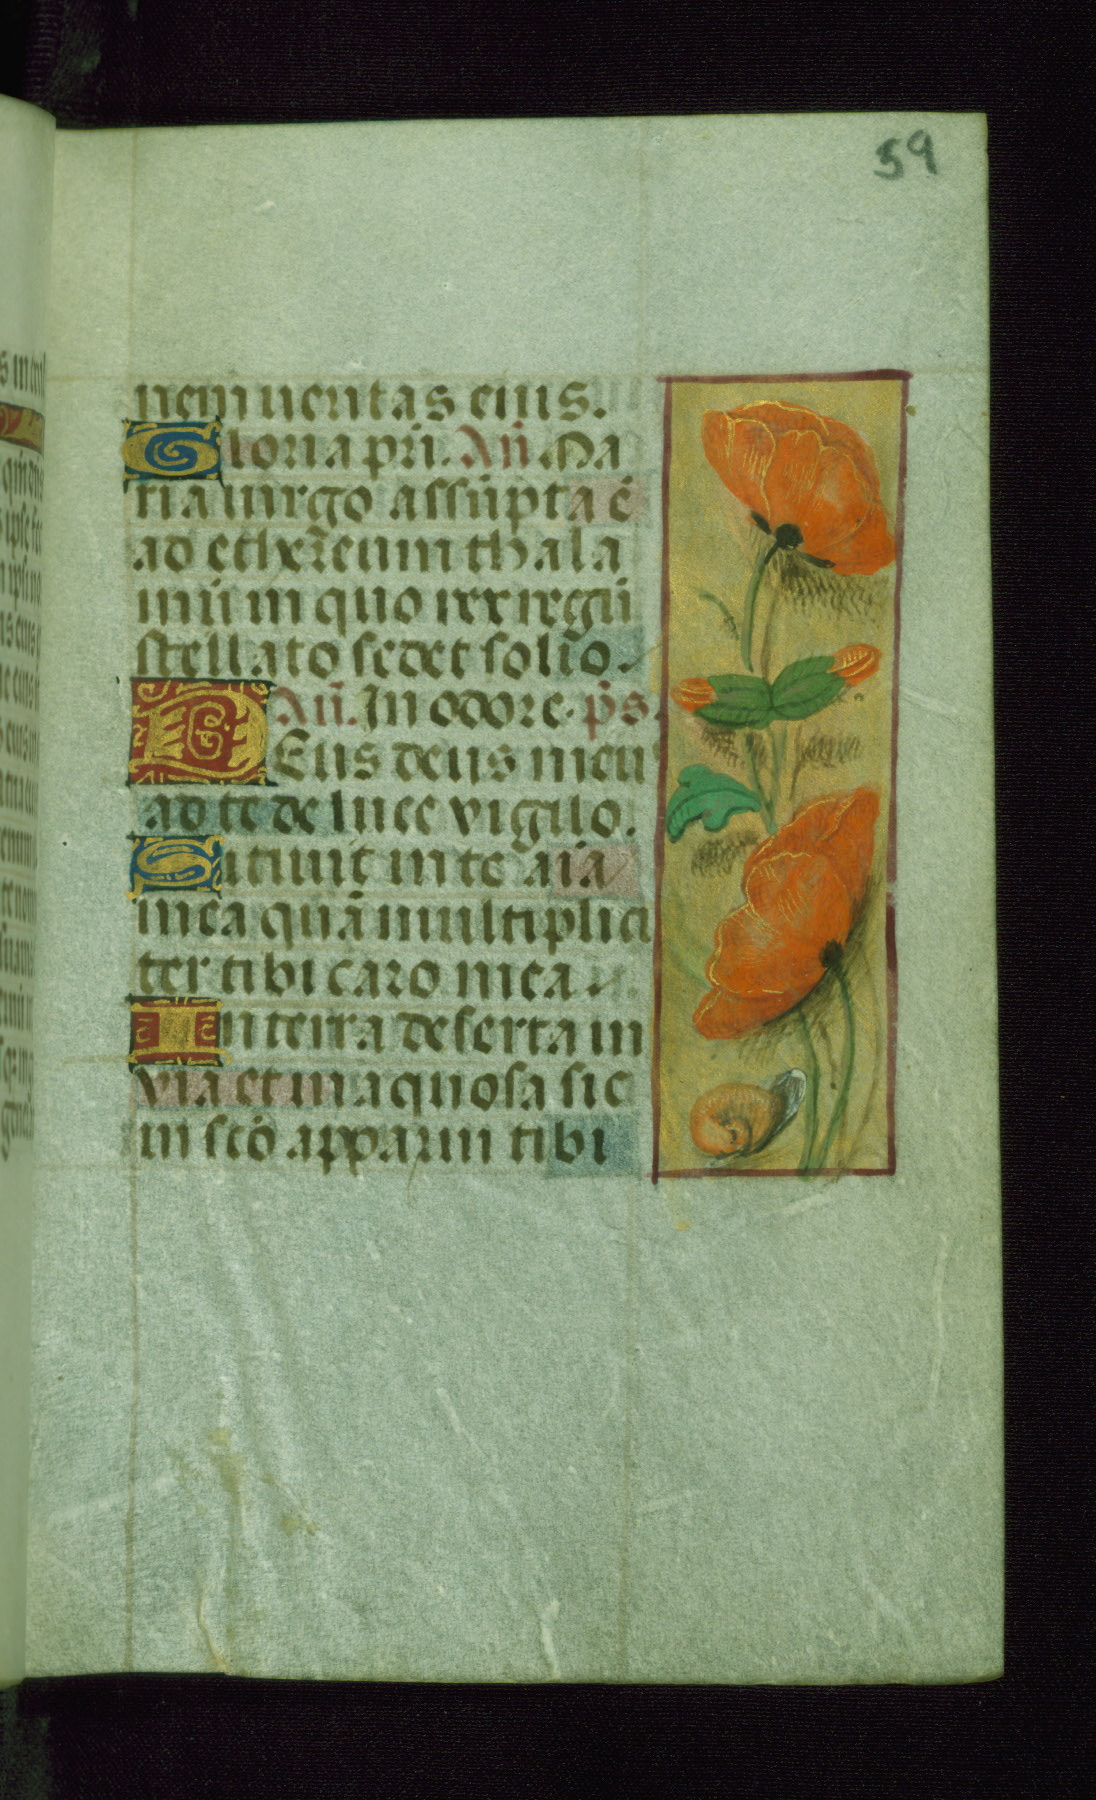 59
nem ueritas eius.
Gloria pr̄i. An̄. Ma
ria uirgo assūpta ē
ad ethereum thala
mū in quo rex regū
stellato sedet solio.
An̄. In odore. p̄s.
DEus deus meus
ad te de luce vigilo.
Sitiuit in te aīa
mea quā multiplici
ter tibi caro mea
In terra deserta in
via et inaquosa sic
in scō apparui tibi